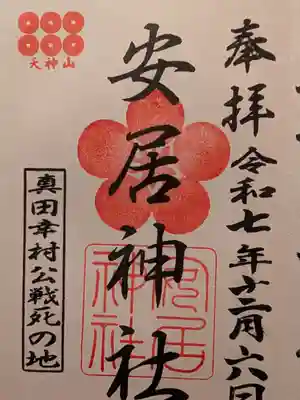 奉拝 令和七年十二月六日
安居神社
天神山
真田幸村公戦死の地
安居神社